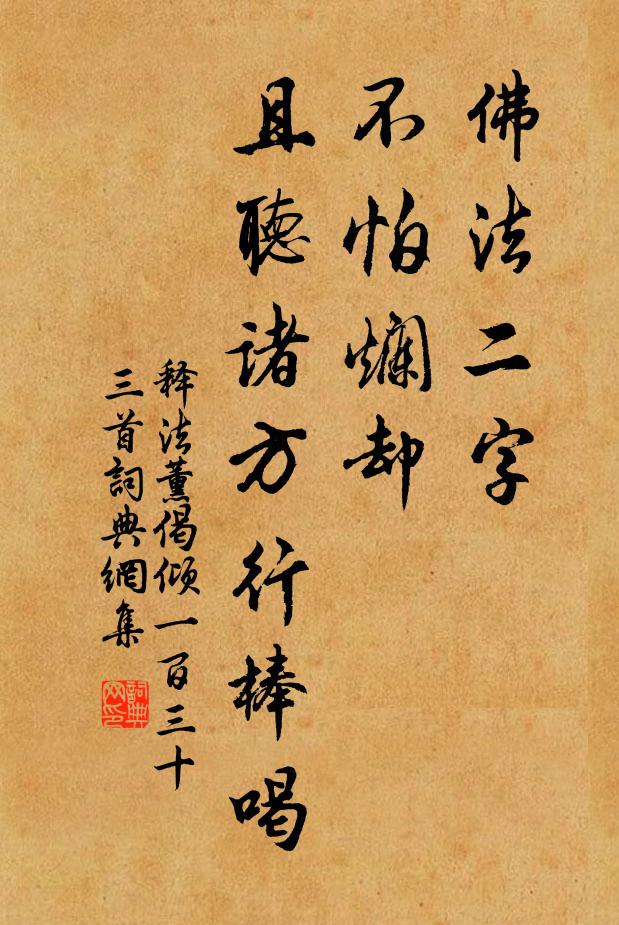 佛法二字
不怕爛却
且聽諸方行棒喝
释法薰偈倾一百三十
三首詞典網集
詞典
网印